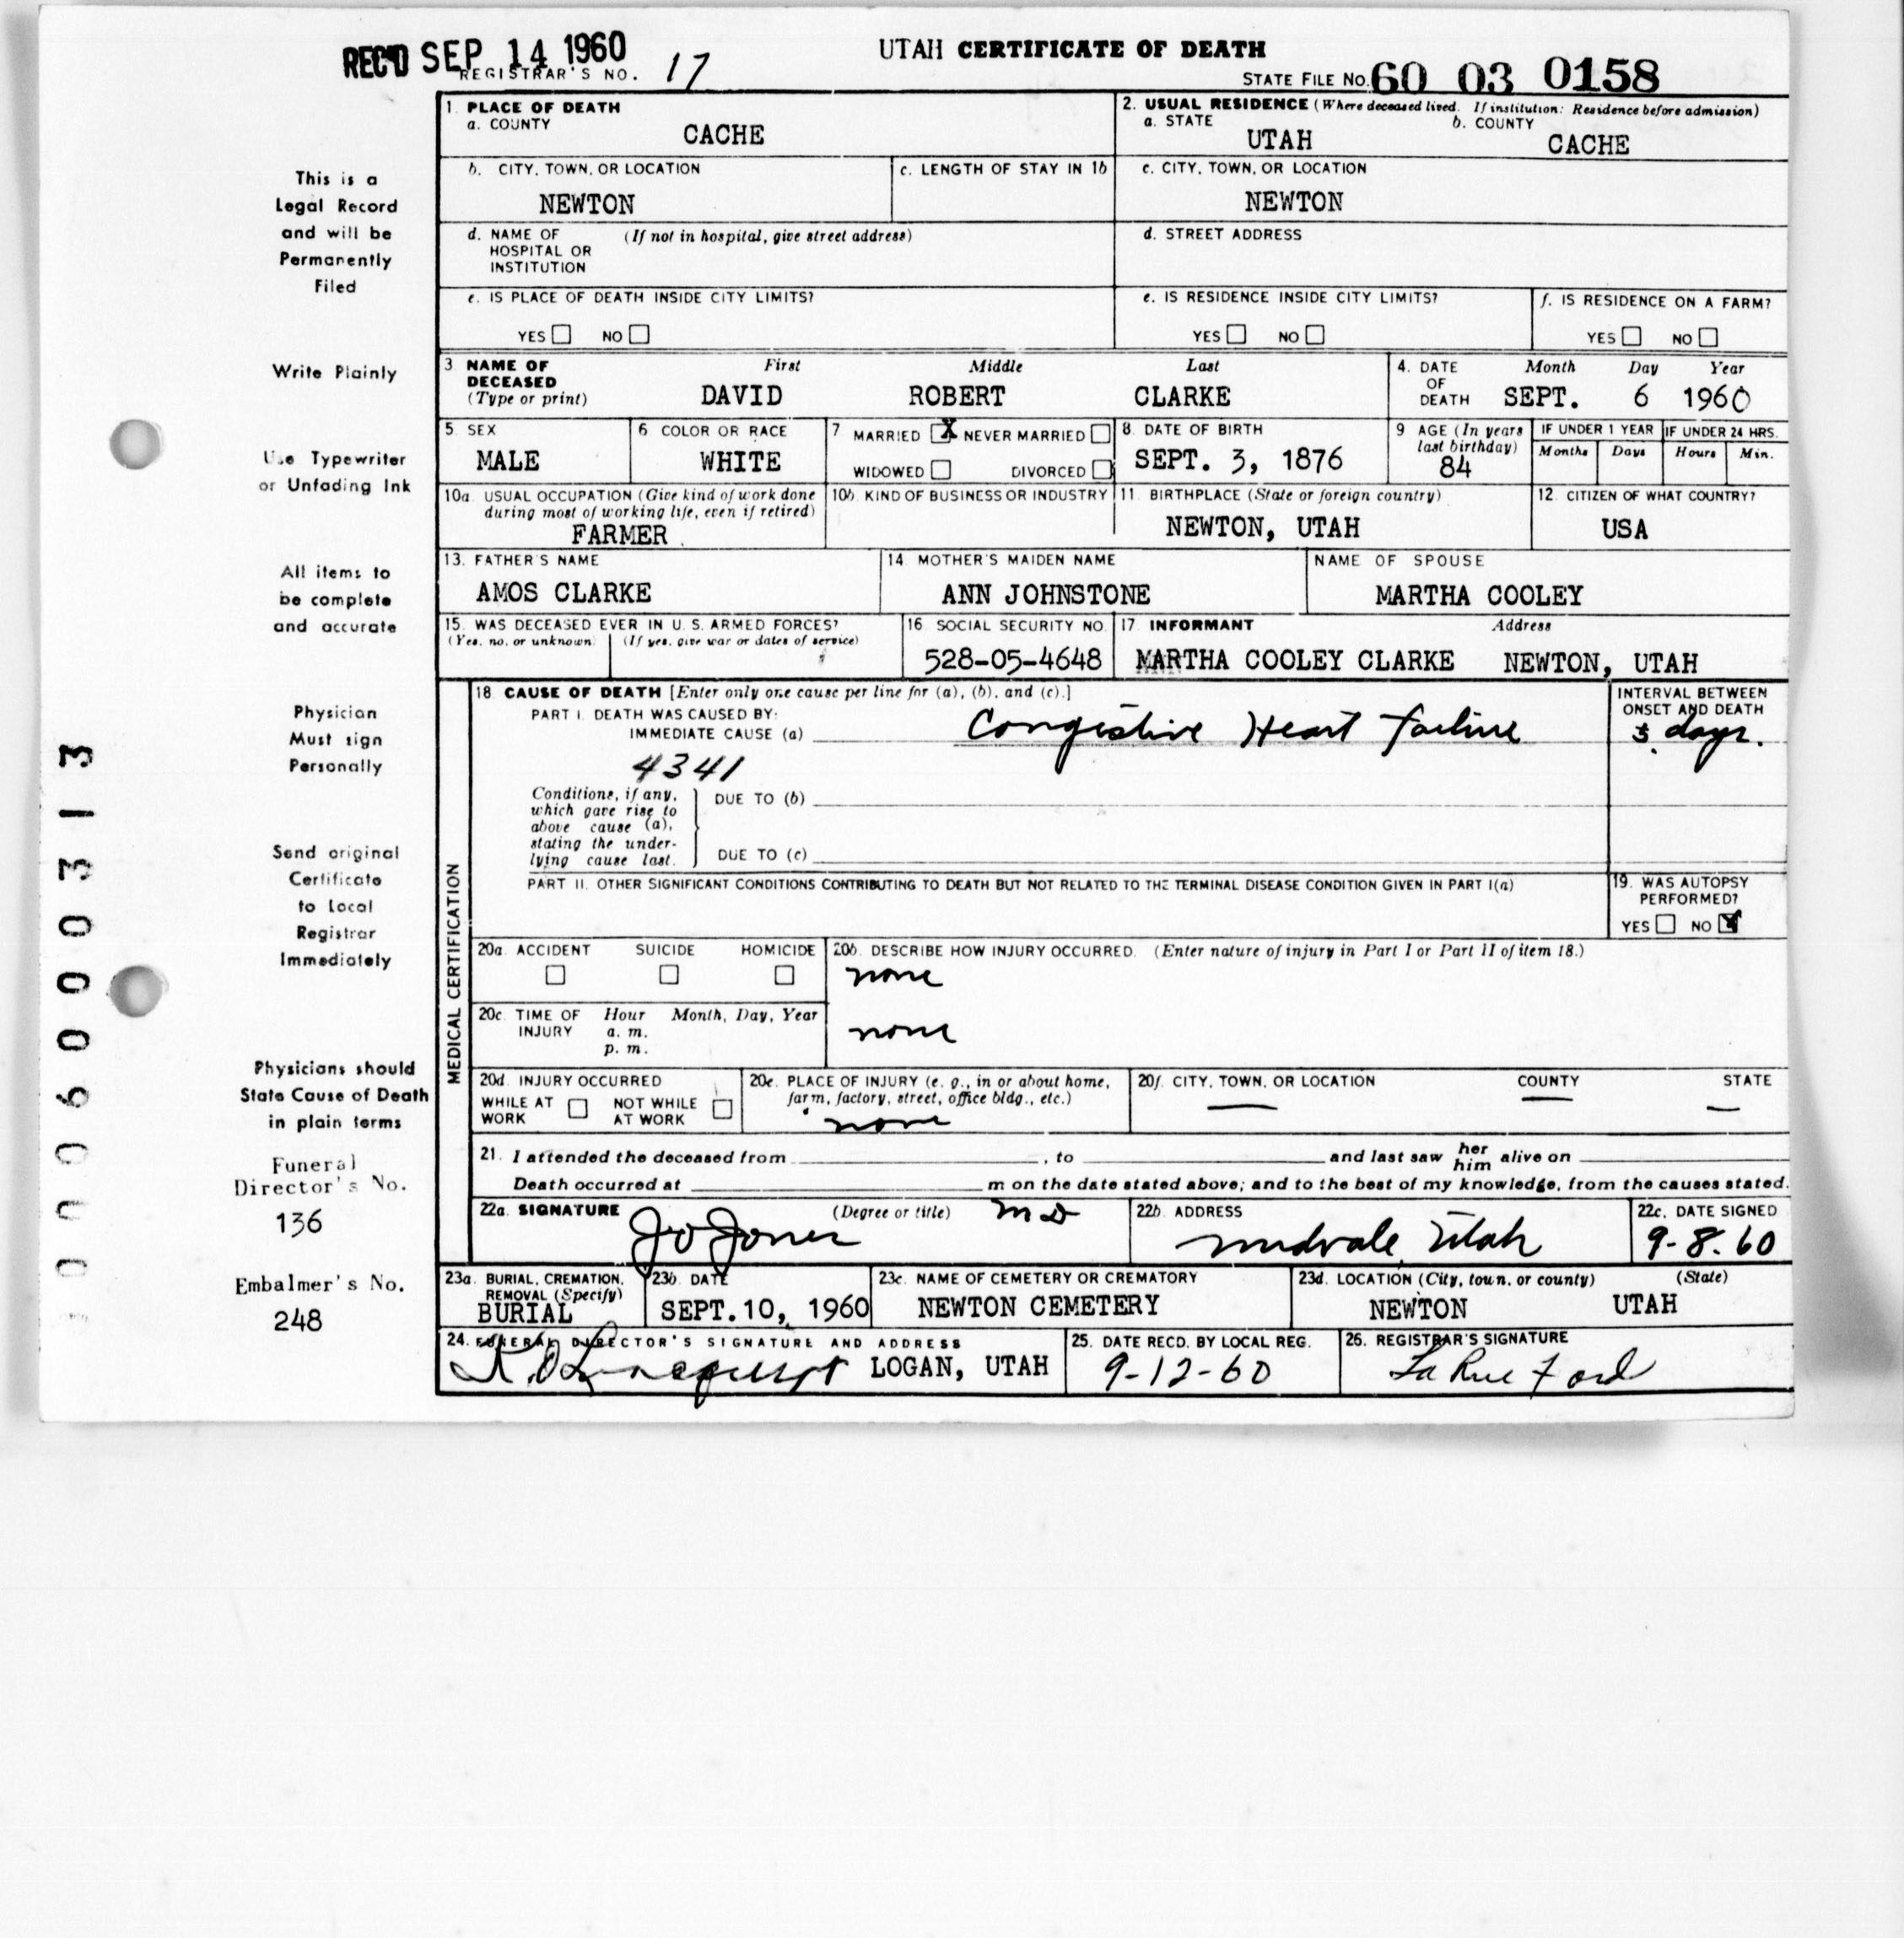 REC'D SEP 14 1960
REGISTRAR'S NO. 17
UTAH CERTIFICATE OF DEATH
STATE FILE NO. 60 03 0158
This is a
Legal Record
and will be
Permanently
Filed
Write Plainly
Use Typewriter
or Unfading Ink
All items to
be complete
and accurate
Physician
Must sign
Personally
Send original
Certificate
to Local
Registrar
Immediately
Physicians should
State Cause of Death
in plain terms
Funeral
Director's No.
136
Embalmer's No.
248
000600313
1. PLACE OF DEATH
a. COUNTY
CACHE
2. USUAL RESIDENCE (Where deceased lived. If institution: Residence before admission)
a. STATE b. COUNTY
UTAH CACHE
b. CITY, TOWN, OR LOCATION
NEWTON
c. LENGTH OF STAY IN 1b
c. CITY, TOWN, OR LOCATION
NEWTON
d. NAME OF (If not in hospital, give street address)
HOSPITAL OR
INSTITUTION
d. STREET ADDRESS
e. IS PLACE OF DEATH INSIDE CITY LIMITS?
YES NO
e. IS RESIDENCE INSIDE CITY LIMITS?
YES NO
f. IS RESIDENCE ON A FARM?
YES NO
3 NAME OF First Middle Last
DECEASED
(Type or print) DAVID ROBERT CLARKE
4. DATE Month Day Year
OF
DEATH SEPT. 6 1960
5. SEX
MALE
6 COLOR OR RACE
WHITE
7 MARRIED X NEVER MARRIED
WIDOWED DIVORCED
8. DATE OF BIRTH
SEPT. 3, 1876
9 AGE (In years
last birthday)
84
IF UNDER 1 YEAR IF UNDER 24 HRS.
Months Days Hours Min.
10a. USUAL OCCUPATION (Give kind of work done
during most of working life, even if retired)
FARMER
10b. KIND OF BUSINESS OR INDUSTRY
11. BIRTHPLACE (State or foreign country)
NEWTON, UTAH
12. CITIZEN OF WHAT COUNTRY?
USA
13. FATHER'S NAME
AMOS CLARKE
14. MOTHER'S MAIDEN NAME
ANN JOHNSTONE
NAME OF SPOUSE
MARTHA COOLEY
15. WAS DECEASED EVER IN U. S. ARMED FORCES?
(Yes, no, or unknown) (If yes, give war or dates of service)
16 SOCIAL SECURITY NO.
528-05-4648
17 INFORMANT Address
MARTHA COOLEY CLARKE NEWTON, UTAH
MEDICAL CERTIFICATION
18. CAUSE OF DEATH [Enter only one cause per line for (a), (b), and (c).]
PART I. DEATH WAS CAUSED BY:
IMMEDIATE CAUSE (a) Congestive Heart Failure
INTERVAL BETWEEN
ONSET AND DEATH
days.
4341
Conditions, if any,
which gave rise to
above cause (a),
stating the under-
lying cause last.
DUE TO (b)
DUE TO (c)
PART II. OTHER SIGNIFICANT CONDITIONS CONTRIBUTING TO DEATH BUT NOT RELATED TO THE TERMINAL DISEASE CONDITION GIVEN IN PART I(a)
19. WAS AUTOPSY
PERFORMED?
YES NO X
20a. ACCIDENT SUICIDE HOMICIDE
20b. DESCRIBE HOW INJURY OCCURRED. (Enter nature of injury in Part I or Part II of item 18.)
none
20c. TIME OF Hour Month, Day, Year
INJURY a. m.
p. m.
none
20d. INJURY OCCURRED
WHILE AT NOT WHILE
WORK AT WORK
20e. PLACE OF INJURY (e. g., in or about home,
farm, factory, street, office bldg., etc.)
none
20f. CITY, TOWN, OR LOCATION COUNTY STATE
— — —
21. I attended the deceased from , to and last saw her him alive on
Death occurred at m on the date stated above; and to the best of my knowledge, from the causes stated.
22a. SIGNATURE (Degree or title) MD
Jones
22b. ADDRESS
Midvale, Utah
22c. DATE SIGNED
9-8-60
23a. BURIAL, CREMATION,
REMOVAL (Specify)
BURIAL
23b. DATE
SEPT.10, 1960
23c. NAME OF CEMETERY OR CREMATORY
NEWTON CEMETERY
23d. LOCATION (City, town, or county) (State)
NEWTON UTAH
24. FUNERAL DIRECTOR'S SIGNATURE AND ADDRESS
LOGAN, UTAH
25. DATE RECD. BY LOCAL REG.
9-12-60
26. REGISTRAR'S SIGNATURE
La Rue Ford